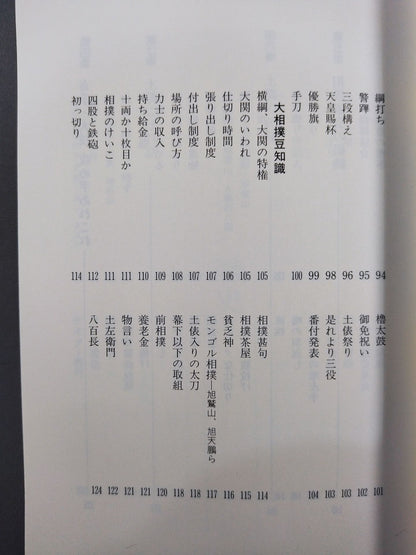 綱打ち 94
警蹕 95
三段構え 96
天皇賜杯 98
優勝旗 99
手刀 100
櫓太鼓 101
御免祝い 102
土俵祭り 103
是れより三役 103
番付発表 104
大相撲豆知識
横綱、大関の特権 105
大関のいわれ 105
仕切り時間 106
張り出し制度 107
付出し制度 107
場所の呼び方 108
力士の収入 109
持ち給金 110
十両か十枚目か 111
相撲のけいこ 111
四股と鉄砲 112
初っ切り 114
相撲甚句 114
相撲茶屋 115
貧乏神 116
モンゴル相撲―旭鷲山、旭天鵬ら 117
土俵入りの太刀 118
幕下以下の取組 118
前相撲 120
養老金 121
物言い 121
土左衛門 122
八百長 124